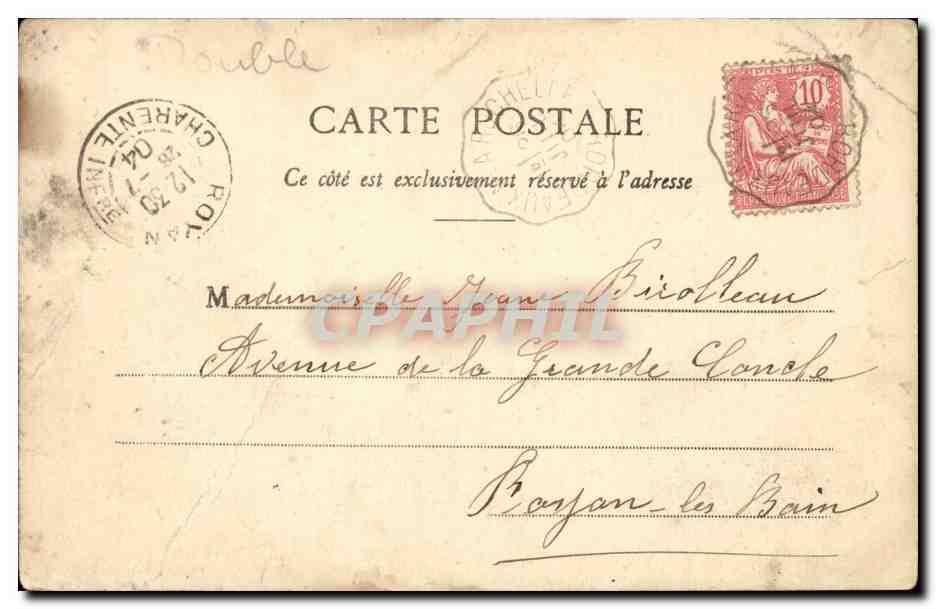 Double
CARTE POSTALE
Ce côté est exclusivement réservé à l'adresse
10
ROYAN
CHARENTE INFRE
12 30
28 -7
04
Mademoiselle Jeane Birolleau
CPAPHIL
Avenue de la Grande Conche
Royan-les Bain